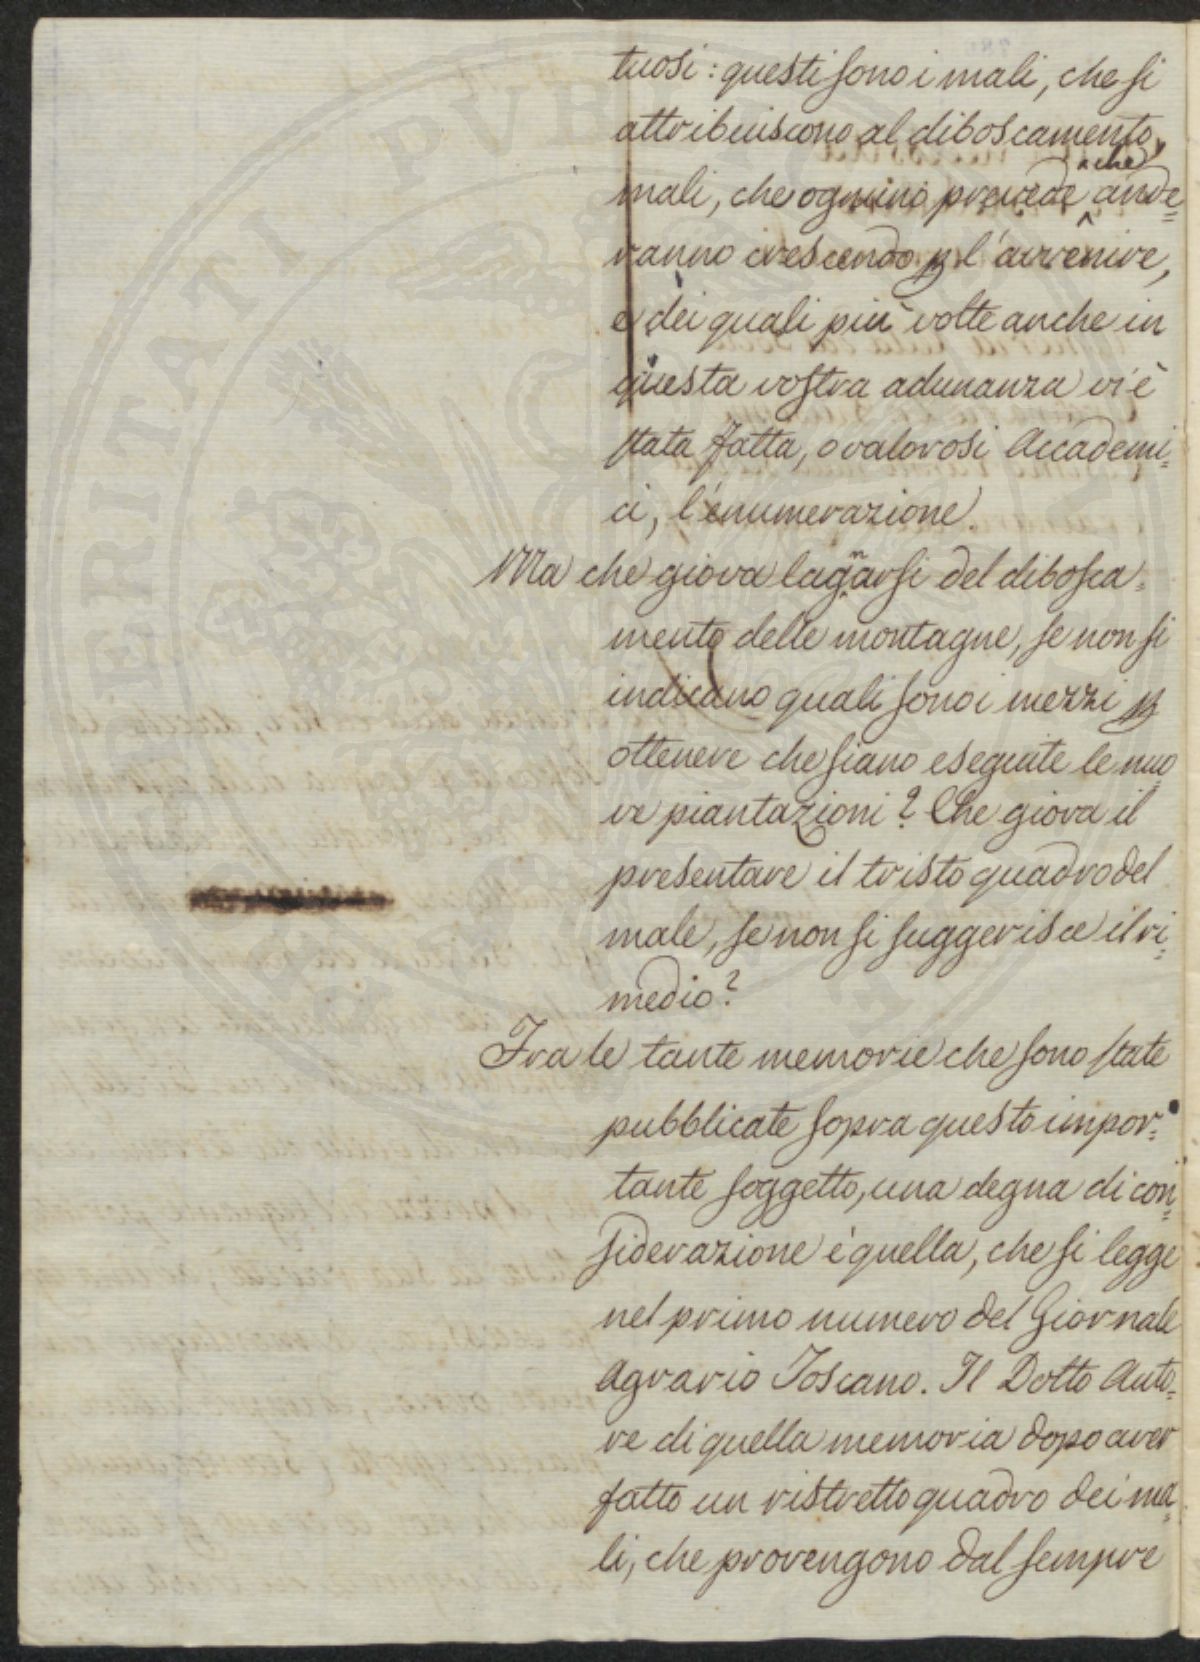 tuosi: questi sono i mali, che si
attribuiscono al diboscamento,
mali, che ognuno prevede che ande=
ranno crescendo p l'avvenire,
e dei quali più volte anche in
questa vostra adunanza vi è
stata fatta, o valorosi Accademi=
ci, l'enumerazione.
Ma che giova lagnarsi del dibosca=
mento delle montagne, se non si
indicano quali sono i mezzi p
ottenere che siano eseguite le nuo
ve piantazioni? Che giova il
presentare il tristo quadro del
male, se non si suggerisce il ri=
medio?
Fra le tante memorie che sono state
pubblicate sopra questo impor=
tante soggetto, una degna di con=
siderazione è quella, che si legge
nel primo numero del Giornale
Agrario Toscano. Il Dotto Auto=
re di quella memoria dopo aver
fatto un ristretto quadro dei ma=
li, che provengono dal sempre